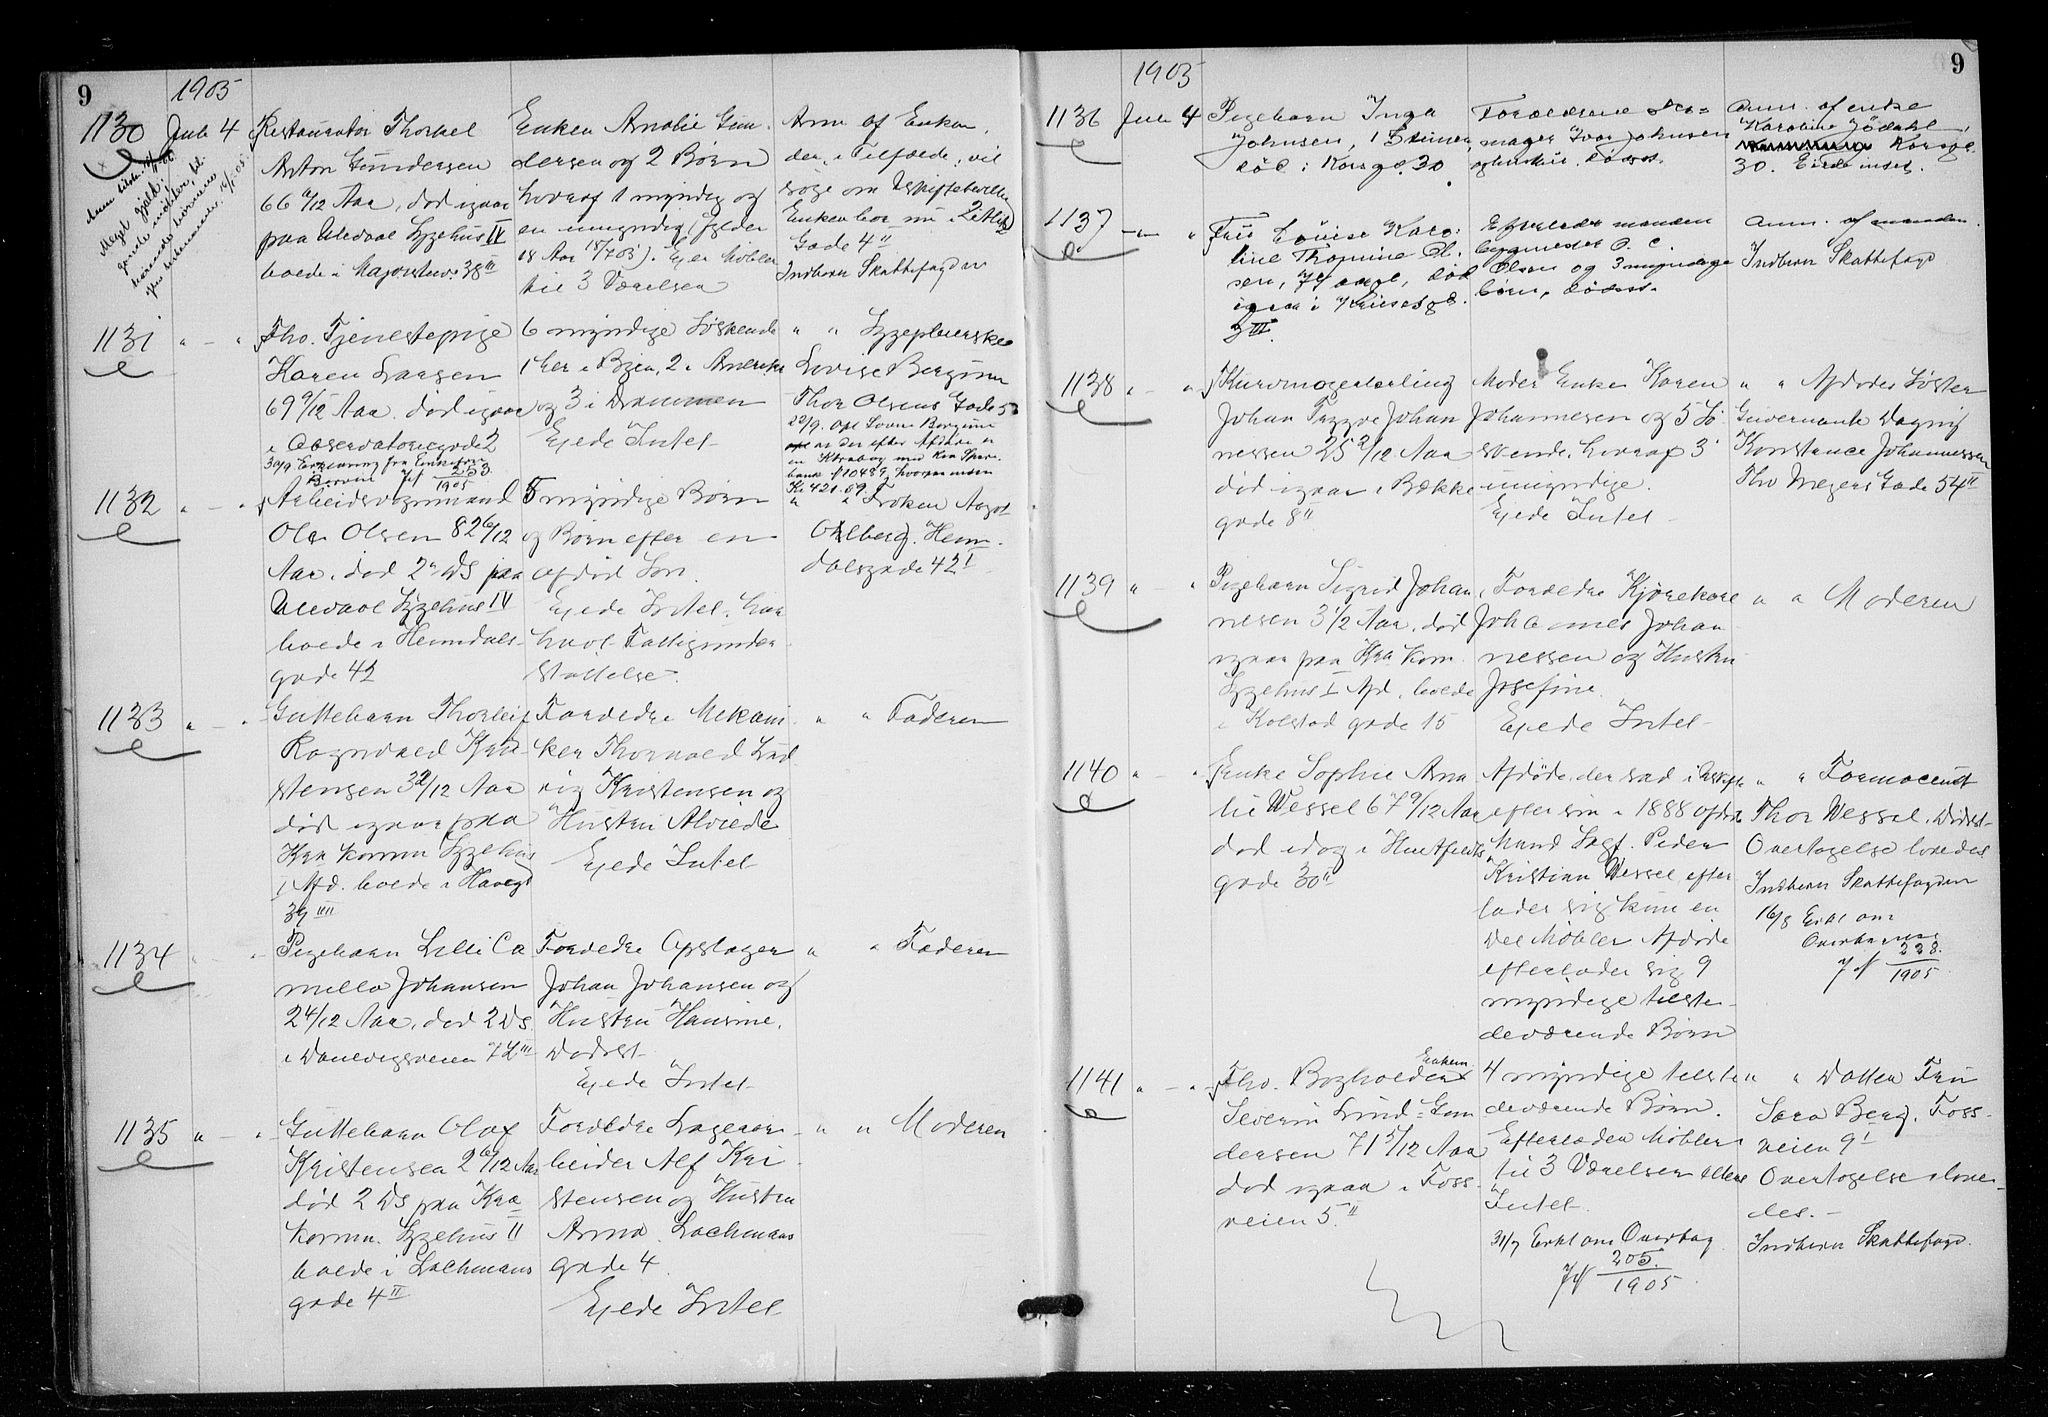 9
1905
1130
Juli 4
Restauratør Thorkel
Anton Gundersen
66 6/12 Aar, død igaar
paa Ulevaal Sygehus IV
boede i Majorstuv. 38 III
Enken Amalie Gun-
dersen og 2 Børn
hvoraf 1 myndig og
en umyndig (fylder
18 Aar 18/7 05). Ejer Møbler
til 3 Værelser
Anm af Enken,
der, i Tilfælde, vil
søge om Uskiftebevilling
Enken bor nu i
Gade 4 II
Indberu Skattefogden
1131
Fhv. Tjenestepige
Karen Larsen
69 9/12 Aar. død igaar
i Observatoriegade 2
6 myndige Søskende
1 her i Byen, 2 i Amerika
og 3 i Drammen
Ejede Intet
" " Sygeplejerske
Lovise Bergum
Thor Olsens Gade 5
253
1905
1132
Arbeidsvognmand
Ole Olsen 82 6/12
Aar, død 2 ds paa
Ulevaal Sygehus IV
boede i Heimdals-
gade 42
5 myndige Børn
og Børn efter en
afdød Søn.
Ejede Intet, har
havt Fattigunder-
støttelse.
" " Frøken Aagot
Olberg. Heim-
dalsgade 42 I
1133
Guttebarn Thorleif
Ragnvald Kri-
stensen 3 2/12 Aar
død igaar paa
Kra Komm Sygehus
I Afd. boede i Haveg
39 IIII
Forældre Mekani-
ker Thorvald Lud
vig Kristensen og
Hustru Alvilde
Ejede Intet
" " Faderen
1134
Pigebarn Lilli Ca
milla Johansen
2 4/12 Aar, død 2 ds.
i Danevigsveien 72 III
Forældre Opslager
Johan Johansen og
Hustru Hansine.
Dødsst
Ejede Intet
" " Faderen
1135
Guttebarn Olaf
Kristensen 2 6/12 Aar
død 2 ds paa Kra
Komm. Sygehus II
boede i Lachmans
gade 4 II
Forældre Lagerar-
beider Alf Kri-
stensen og Hustru
Anna. Lachmans
gade 4
Ejede Intet
" " Moderen
1905
9
1136
Juli 4
Pigebarn Inga
Johnsen,
død i Korsgd. 30
Forældrene Sko-
mager Ivar Johnsen
og hustru. Dødsst.
Anm. af enke
Karoline Jødahl,
Korsgd.
30. Eiede intet.
1137
Fru Louise Karo-
line Thomine Ol-
sen, 74 aar, død
igaar i Krusesgd.
9 III.
Efterlader manden
bygmester O. C.
Olsen og 3 myndige
børn, dødsst.
Anm. af manden
Indberu Skattefogd
1138
Kurvmagerlærling
Johan Trygve Johan
nessen 25 3/12 Aar
død igaar i Bække
gade 8 II
Moder Enke Karen
Johannesen og 5 Sø
skende, hvoraf 3
umyndige.
Ejede Intet
" " Afdødes Søster
Guvernante Dagny
Konstance Johannessen
Thv Meyers Gade 54 II
1139
Pigebarn Sigrid Johan
nesen 3 1/2 Aar, død
igaar paa Kra Kom.
Sygehus I Afd, boede
i Kolstad gade 15
Forældre Kjørekarl
Johannes Johan-
nessen og Hustru
Josefine.
Ejede Intet
" " Moderen
1140
Enke Sophie Ama
lie Wessel 67 9/12 Aar
død idag i Huitfeldts
gade 30 II
Afdøde, der sad i Uskifte
efter sin i 1888 afdøde
Mand Sagf. Peder
Kristian Wessel efter
lader sig kun en
Del Møbler Afdøde
efterlader sig 9
myndige tilste-
deværende Børn
" " Farmaceut
Thor Wessel. Dødsst
Overtagelse lovedes
Indberu Skattefogden
16/8 Erkl om
Overtagelse
228.
1905
1141
Fhv. Bogholder
Enkem
Severin Lund-Gun
dersen 71 5/12 Aar
død igaar i Foss-
veien 5. II
4 myndige tilste
deværende Børn.
Efterladen Møbler
til 3 Værelser ellers
Intet.
31/7 Erkl om Overtag
205.
1905
" " Datter Fru
Sara Berg. Foss-
veien 9 I
Overtagelse love-
des.-
Indberu Skattefogd.